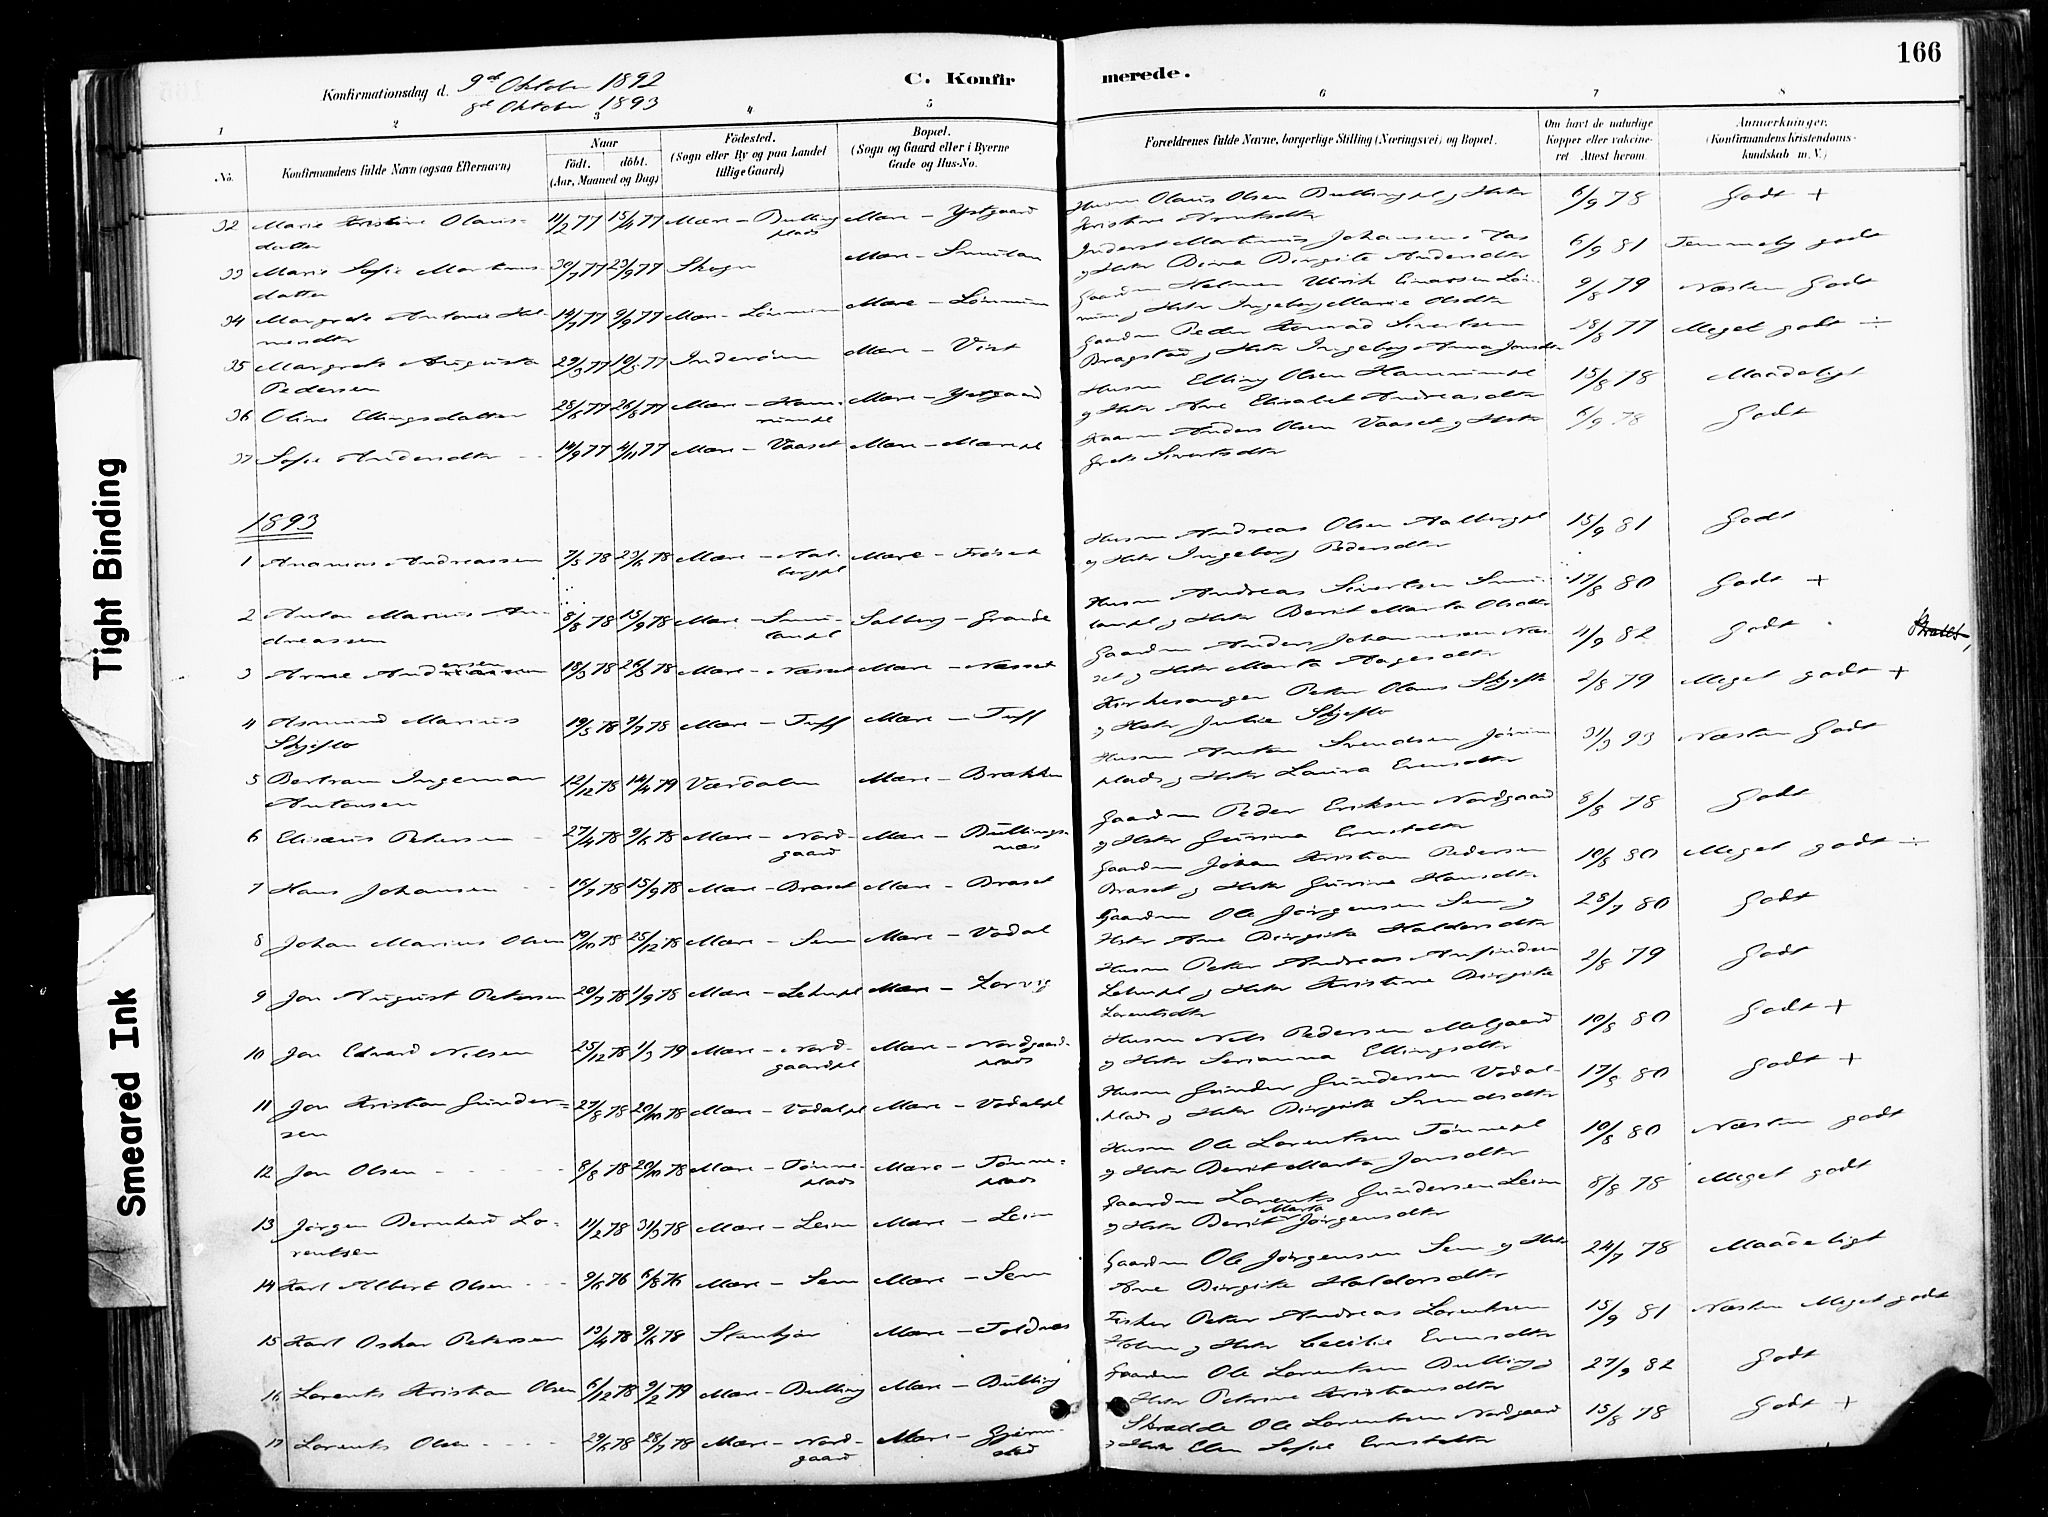 166
Konfirmationsdag d. 9de Oktober 1892
8de Oktober 1893
C. Konfirmerede.
1 2 3 4 5 6 7 8
No.
Konfirmandens fulde Navn (ogsaa Efternavn)
Naar
Födt. döbt.
(Aar, Maaned og Dag)
Födested.
(Sogn eller By og paa Landet
tillige Gaard)
Bopæl.
(Sogn og Gaard eller i Byerne
Gade og Hus-No.
Forældrenes fulde Navne, borgerlige Stilling (Næringsvei) og Bopæl.
Om havt de naturlige
Kopper eller vakcine-
ret Attest herom.
Anmærkninger.
(Konfirmandens Kristendoms-
kundskab m. V.)
32 Marie Kristine Olaus-
datter 11/2 77 15/4 77 Mære - Bulling
plads Mære - Ystgaard Husm Olaus Olsen Bullingpl og Hstr
Kristine 6/9 78 Godt +
33 Marie Sofie Martinus
datter 30/7 77 23/9 77 Skogn Mære - Inderst Martinus Johansen
og Hstr Birgite Andersdtr 6/9 81 Temmelig godt
34 Margrete Antonie Hel-
mersdtr 14/7 77 9/9 77 Mære - Mære - Gaardm Helmer Ulrik
og Hstr Ingeborg Marie Olsdtr 9/8 79 Næsten Godt
35 Margrete Augusta
Pedersen 29/3 77 10/5 77 Inderøen Mære - Vist Gaardm Peder Konrad Sivertsen
Bragstad og Hstr Ingeborg Anna 18/8 77 Meget godt ÷
36 Oline Ellingsdatter 28/6 77 26/8 77 Mære - Mære - Ystgaard Husm Elling Olsen
og Hstr Ane Elisabet Andreasdtr 15/8 78 Maadeligt
37 Sofie Andersdtr 14/9 77 4/11 77 Mære - Vaaset Mære - Mærepl Anders Olsen Vaaset og Hstr
Grete Sivertsdtr 6/9 78 Godt
1893
1 Andreassen 7/5 78 23/6 78 Mære - Aal-
bergpl Mære - Frøset Husm Andreas Olsen Aalbergpl
og Hstr Ingeborg Pedersdtr 15/9 81 Godt
2 Anton Marius An-
dreassen 8/8 78 15/9 78 Mære - Salberg - Grande Husm Andreas Sivertsen
og Hstr Berit Marta Olsdtr 17/8 80 Godt +
3 Arne Andersen 18/3 78 26/5 78 Mære - Næset Mære - Næsset Gaardm Anders Johannesen Næ-
set og Hstr Marta Aagesdtr 4/9 82 Godt
4 Asmund Marius
Skjeflo 19/5 78 9/7 78 Mære - Tuff Mære - Tuff Kirkesanger Peter Olaus Skjeflo
og Hstr Julie Skjeflo 2/8 79 Meget godt +
5 Bertram Ingeman
Antonsen 12/12 78 14/4 79 Værdalen Mære - Brækken Husm Anton Svendsen
plads og Hstr Laura 31/3 93 Næsten Godt
6 Elisæus Petersen 27/4 78 9/6 78 Mære - Nord-
gaard Mære - Bullings-
næs Gaardm Peder Eriksen Nordgaard
og Hstr Gurina 8/8 78 Godt
7 Hans Johansen 19/7 78 15/9 78 Mære - Braset Mære - Braset Gaardm Johan Kristian Pedersen
Braset og Hstr Gurine Hansdtr 10/8 80 Meget godt ÷
8 Johan Marius Olsen 19/11 78 25/12 78 Mære - Sem Mære - Vodal Gaardm Ole Jørgensen Sem og
Hstr Ane Birgite Haldorsdtr 28/7 80 Godt
9 Jon August Petersen 20/7 78 1/9 78 Mære - Mære - Lorvig Husm Peter Andreas
og Hstr Kristine Birgite
Lorentsdtr 2/8 79 Godt
10 Jon Edvard Nilsen 25/12 78 1/3 79 Mære - Nord-
gaardpl Mære - Nordgaard-
plads Husm Nils Pedersen
og Hstr Serianna Ellingsdtr 10/8 80 Godt +
11 Jon Kristian Gunder-
sen 27/8 78 20/10 78 Mære - Vodalpl Mære - Vodalpl Husm Gunder Gundersen Vodal-
plads og Hstr Birgite Svendsdtr 17/8 80 Godt +
12 Jon Olsen 8/8 78 20/10 78 Mære - Tønne-
plads Mære - Tønne-
plads Husm Ole Lorentsen Tønnepl
og Hstr Berit Marta Jonsdtr 10/8 80 Næsten godt
13 Jørgen Bernhard Lo-
rentsen 11/2 78 31/3 78 Mære - Leim Mære - Leim Gaardm Lorents Gundersen Leim
og Hstr Berit Marta Jørgensdtr 8/8 78 Meget godt
14 Karl Albert Olsen 9/6 76 6/8 76 Mære - Sem Mære - Sem Gaardm Ole Jørgensen Sem og Hstr
Ane Birgite Haldorsdtr 24/7 78 Maadeligt
15 Karl Oskar Petersen 13/4 78 9/6 78 Stenkjær Mære - Toldnes Fisker Peter Andreas Lorentsen
Holme og Hstr 15/9 81 Næsten Meget godt
16 Lorents Kristian Olsen 6/12 78 9/2 79 Mære - Bulling Mære - Bulling Gaardm Ole Lorentsen Bulling og
Hstr Petrine Kristiansdtr 27/9 82 Godt
17 Lorents Olsen 29/5 78 28/7 78 Mære - Nord-
gaard Mære - Skrædder Ole Lorentsen Nordgaard
og Hstr Elen Sofie 15/8 78 Godt +
Tight Binding
Smeared Ink